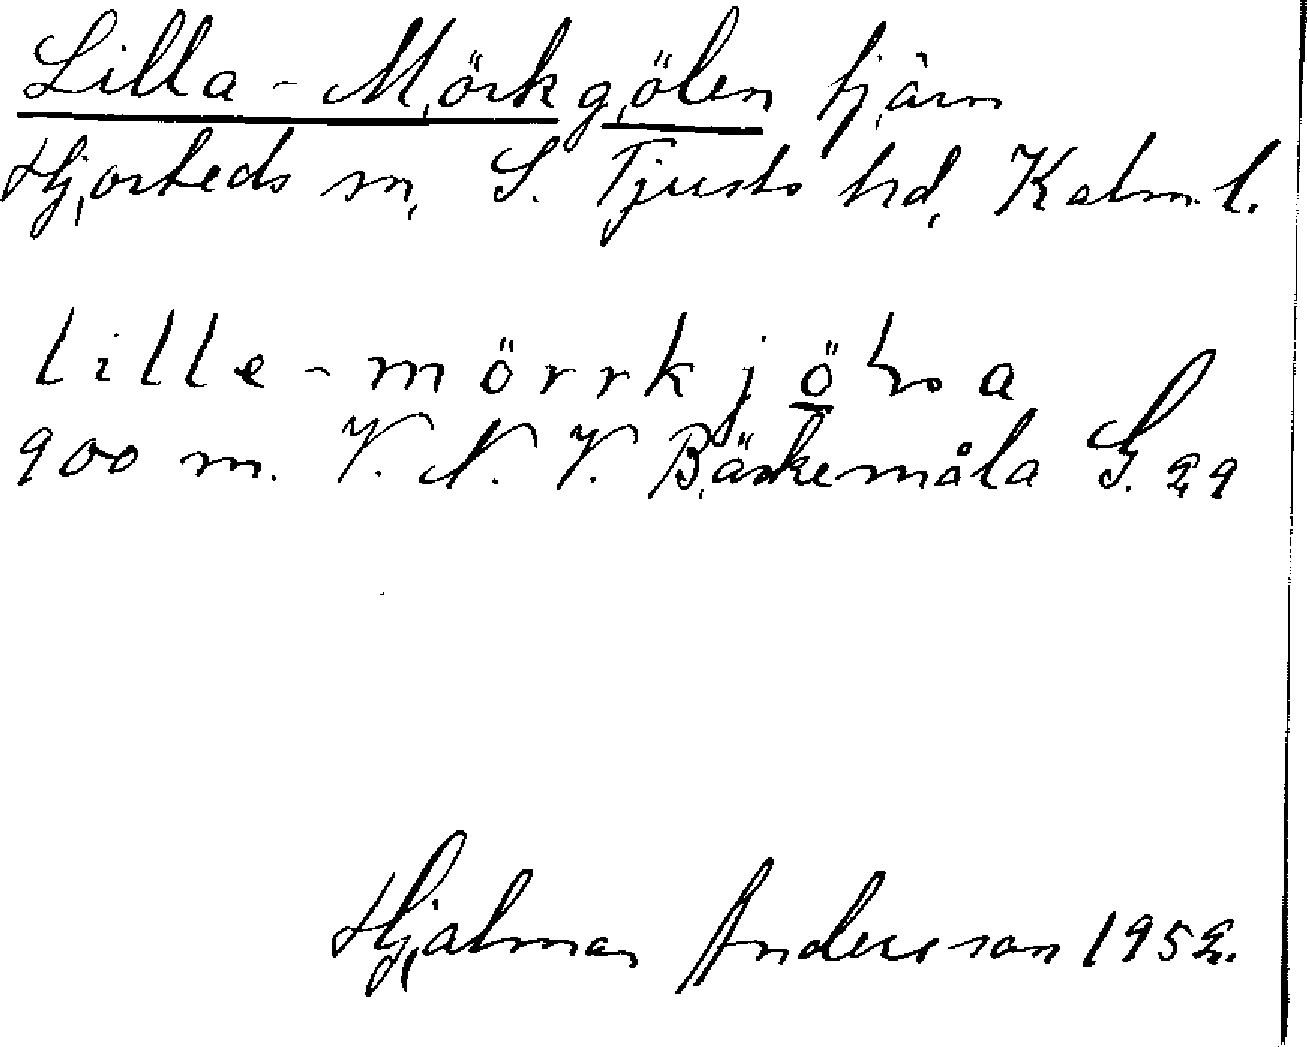 Lilla-Mörkgölen tjärn
Hjorteds sn, S. Tjusts hd, Kalm. l.
lille-mörrkjö a
900 m. V. N. V. Bäckemåla S. 29
Hjalmar Andersson 1952.